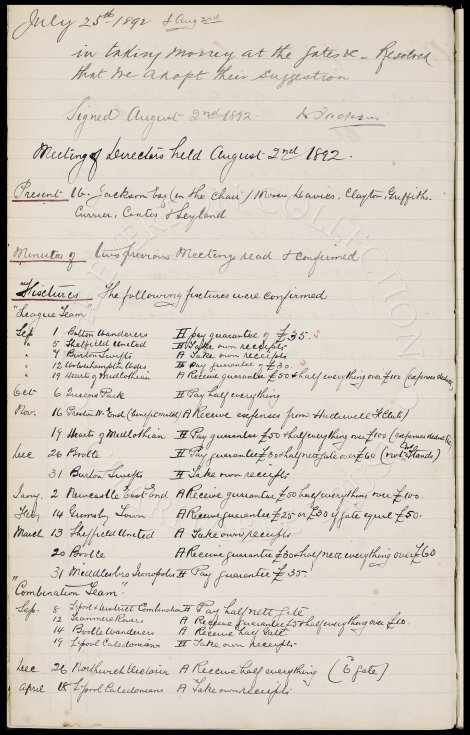 July 25th 1892 & Aug 2nd
in taking money at the gates &c - Resolved
that we adopt their suggestion
Signed August 2nd 1892. W Jackson
Meeting of Directors held August 2nd 1892.
Present W. Jackson Esq (in the Chair) Davies, Clayton, Griffiths.
Currier, Coates & Leyland
Minutes of two previous Meetings read & confirmed
Fixtures. The following fixtures were confirmed
"League Team"
Sep 1 Bolton Wanderers H pay guarantee of £35.
" 5 Sheffield United H Take own receipts
" 7 Burton Swifts A Take own receipts
" 12 Wolverhampton Wds H pay guarantee of £30.
" 19 Hearts of Midlothian A Receive guarantee £50 & half everything over £100 (expenses
Oct 6 Queens Park H Pay half everything
Nov. 16 Preston N. End (benefit match) A Receive expenses from
19 Hearts of Midlothian H Pay guarantee £50 & half everything over £100 (expenses
Dec 26 Bootle H Pay guarantee £30 & half nett gate over £60 (not Stands)
31 Burton Swifts H Take own receipts
Jany. 2 Newcastle East End A Receive guarantee £50 half everything over £100.
Feby 14 Grimsby Town A Receive guarantee £25 or £30 if gate equal £50.
March 13 Sheffield United A Take own receipts
20 Bootle A Receive guarantee £30 & half nett everything over £60
31 Middlesbro Ironopolis H Pay guarantee £35.
"Combination Team"
Sep. 8 L'pool & District Combination H Pay half nett gate
12 Tranmere Rovers A Receive guarantee £5 & half everything over £10.
14 Bootle Wanderers A Receive half gate
19 L'pool Caledonians H Take own receipts
Dec 26 Northwich Victoria A Receive half everything (6d gate)
April 18 L'pool Caledonians A Take own receipts